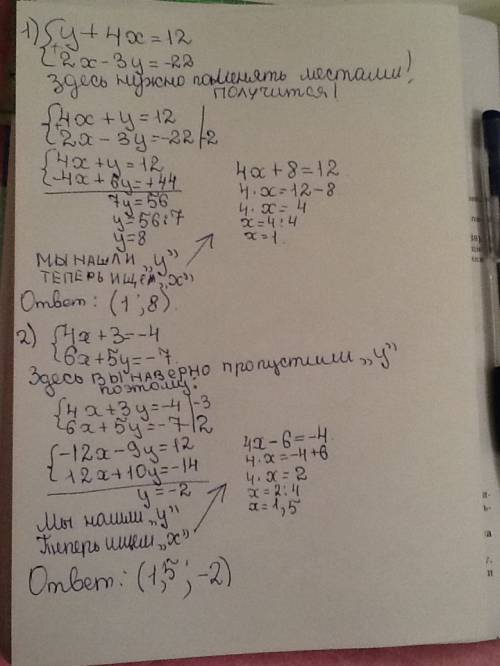 1) { y + 4x = 12
{ 2x - 3y = -22
Здесь нужно поменять местами!
получится!
{ 4x + y = 12
{ 2x - 3y = -22 | -2
{ 4x + y = 12
{ -4x + 6y = +44
7y = 56
y = 56 : 7
y = 8
мы нашли „y”
теперь ищем „x”
4x + 8 = 12
4 · x = 12 - 8
4 · x = 4
x = 4 : 4
x = 1
Ответ: (1 ; 8)
2) { 4x + 3 = -4
{ 6x + 5y = -7
Здесь вы наверно пропустили „y”
поэтому:
{ 4x + 3y = -4 | -3
{ 6x + 5y = -7 | 2
{ -12x - 9y = 12
{ 12x + 10y = -14
y = -2
Мы нашли „y”
Теперь ищем „x”
4x - 6 = -4
4 · x = -4 + 6
4 · x = 2
x = 2 : 4
x = 1,5
Ответ: (1,5 ; -2)